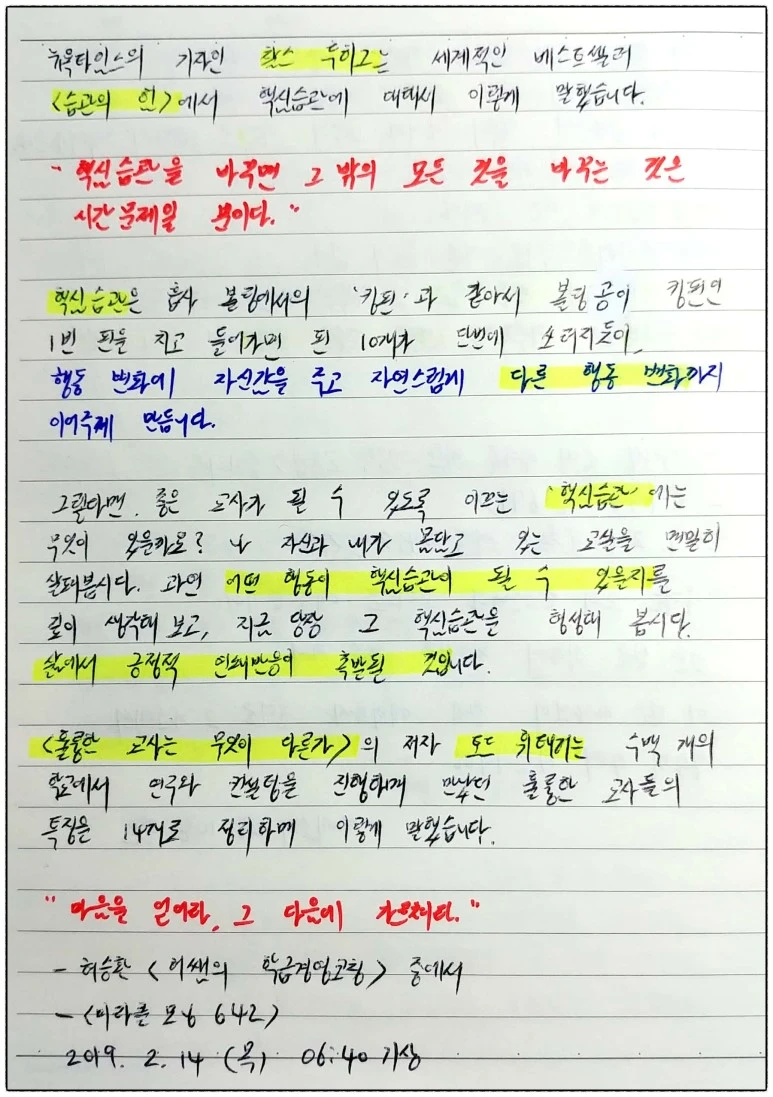 뉴욕타임스의 기자인 찰스 두히그는 세계적인 베스트셀러
<습관의 힘>에서 핵심습관에 대해서 이렇게 말했습니다.
"핵심습관을 바꾸면 그 밖의 모든 것을 바꾸는 것은
시간문제일 뿐이다."
핵심습관은 흡사 볼링에서의 '킹핀'과 같아서 볼링공이 킹핀인
1번 핀을 치고 들어가면 핀 10개가 단번에 쓰러지듯이,
행동 변화에 자신감을 주고 자연스럽게 다른 행동 변화까지
이어주게 만듭니다.
그렇다면, 좋은 교사가 될 수 있도록 이끄는 '핵심습관'에는
무엇이 있을까요? 나 자신과 내가 몸담고 있는 교실을 면밀히
살펴봅시다. 과연 어떤 행동이 핵심습관이 될 수 있을지를
깊이 생각해 보고, 지금 당장 그 핵심습관을 형성해 봅시다.
삶에서 긍정적 연쇄반응이 촉발될 것입니다.
<훌륭한 교사는 무엇이 다른가>의 저자 토드 휘태커는 수백 개의
학교에서 연구와 컨설팅을 진행하며 만났던 훌륭한 교사들의
특징을 14개로 정리하며 이렇게 말했습니다.
"마음을 얻어라, 그 다음에 가르쳐라."
- 허승환 <허쌤의 학급경영코칭> 중에서
- <미라클 모닝 642>
2019. 2. 14 (목) 06:40 기상